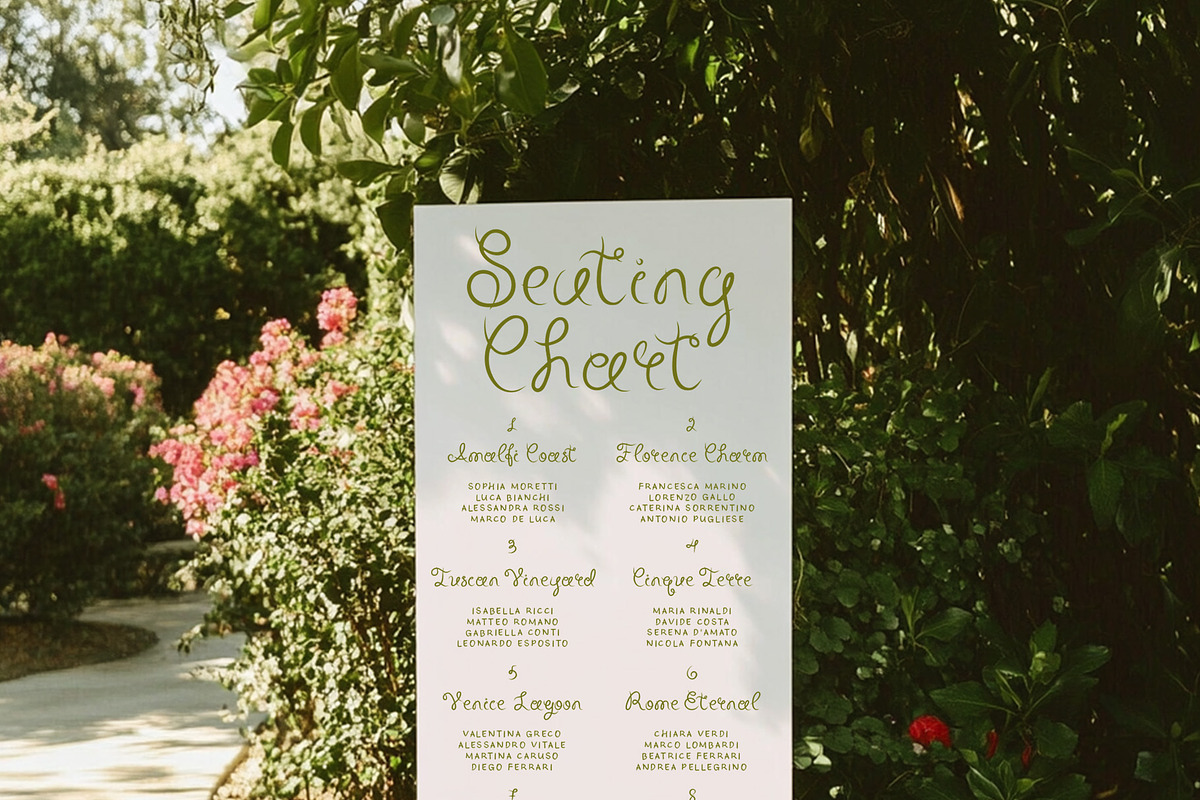 Seating
Chart
1
Amalfi Coast
SOPHIA MORETTI
LUCA BIANCHI
ALESSANDRA ROSSI
MARCO DE LUCA
2
Florence Charm
FRANCESCA MARINO
LORENZO GALLO
CATERINA SORRENTINO
ANTONIO PUGLIESE
3
Tuscan Vineyard
ISABELLA RICCI
MATTEO ROMANO
GABRIELLA CONTI
LEONARDO ESPOSITO
4
Cinque Terre
MARIA RINALDI
DAVIDE COSTA
SERENA D'AMATO
NICOLA FONTANA
5
Venice Lagoon
VALENTINA GRECO
ALESSANDRO VITALE
MARTINA CARUSO
DIEGO FERRARI
6
Rome Eternal
CHIARA VERDI
MARCO LOMBARDI
BEATRICE FERRARI
ANDREA PELLEGRINO
7
8